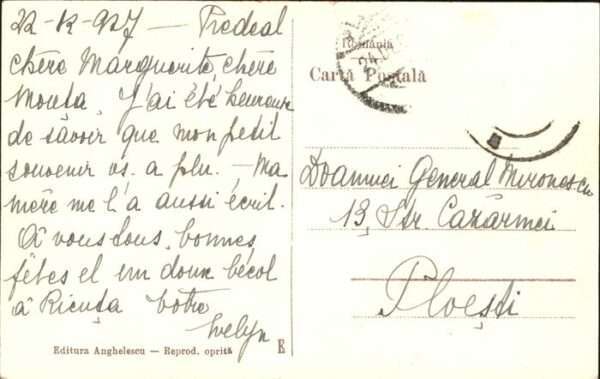 22-12-927 — Predeal
chère Marguerite, chère
Mouta, J'ai été heureuse
de savoir que mon petit
souvenir vs. a plu. — Ma
mère me l'a aussi écrit.
À vous tous, bonnes
fêtes et un doux bécot
à Ricuța Votre
Evelyn
Editura Anghelescu — Reprod. oprită
E
România
Carta Poștală
24
Doamnei General Mironescu
13, Str. Cazărmei
Ploești